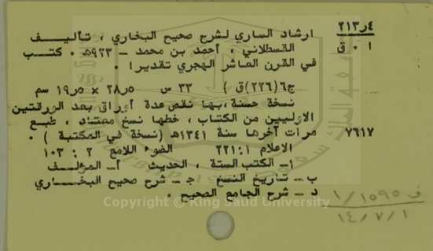 ٢١٣ر٤
ا ٠ ق
ارشاد الساري لشرح صحيح البخاري ، تأليف
القسطلاني ، أحمد بن محمد - ٩٢٣هـ ٠ كتب
في القرن العاشر الهجري تقديرا ٠
ج٦ (٢٢٦ق) ٣٣ س ٢٨٫٥ × ١٩٫٥ سم
نسخة حسنة ، بها نقص عدة أوراق بعد الورقتين
الاوليين من الكتاب ، خطها نسخ معتاد ، طبع
٧٦١٧
مرات آخرها سنة ١٣٤١هـ (نسخة في المكتبة) ٠
الاعلام ١ : ٢٢١ الضوء اللامع ٢ : ١٠٣
١- الكتب الستة ، الحديث أ- المؤلف
ب - تاريخ النسخ ج - شرح صحيح البخاري
د - شرح الجامع الصحيح ٠
ف ١/١٥٩٥
١٤/٧/١
Copyright © King Saud University